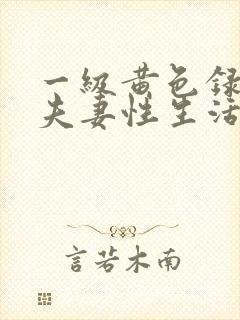 一级黄色录
夫妻性生活
言若木南